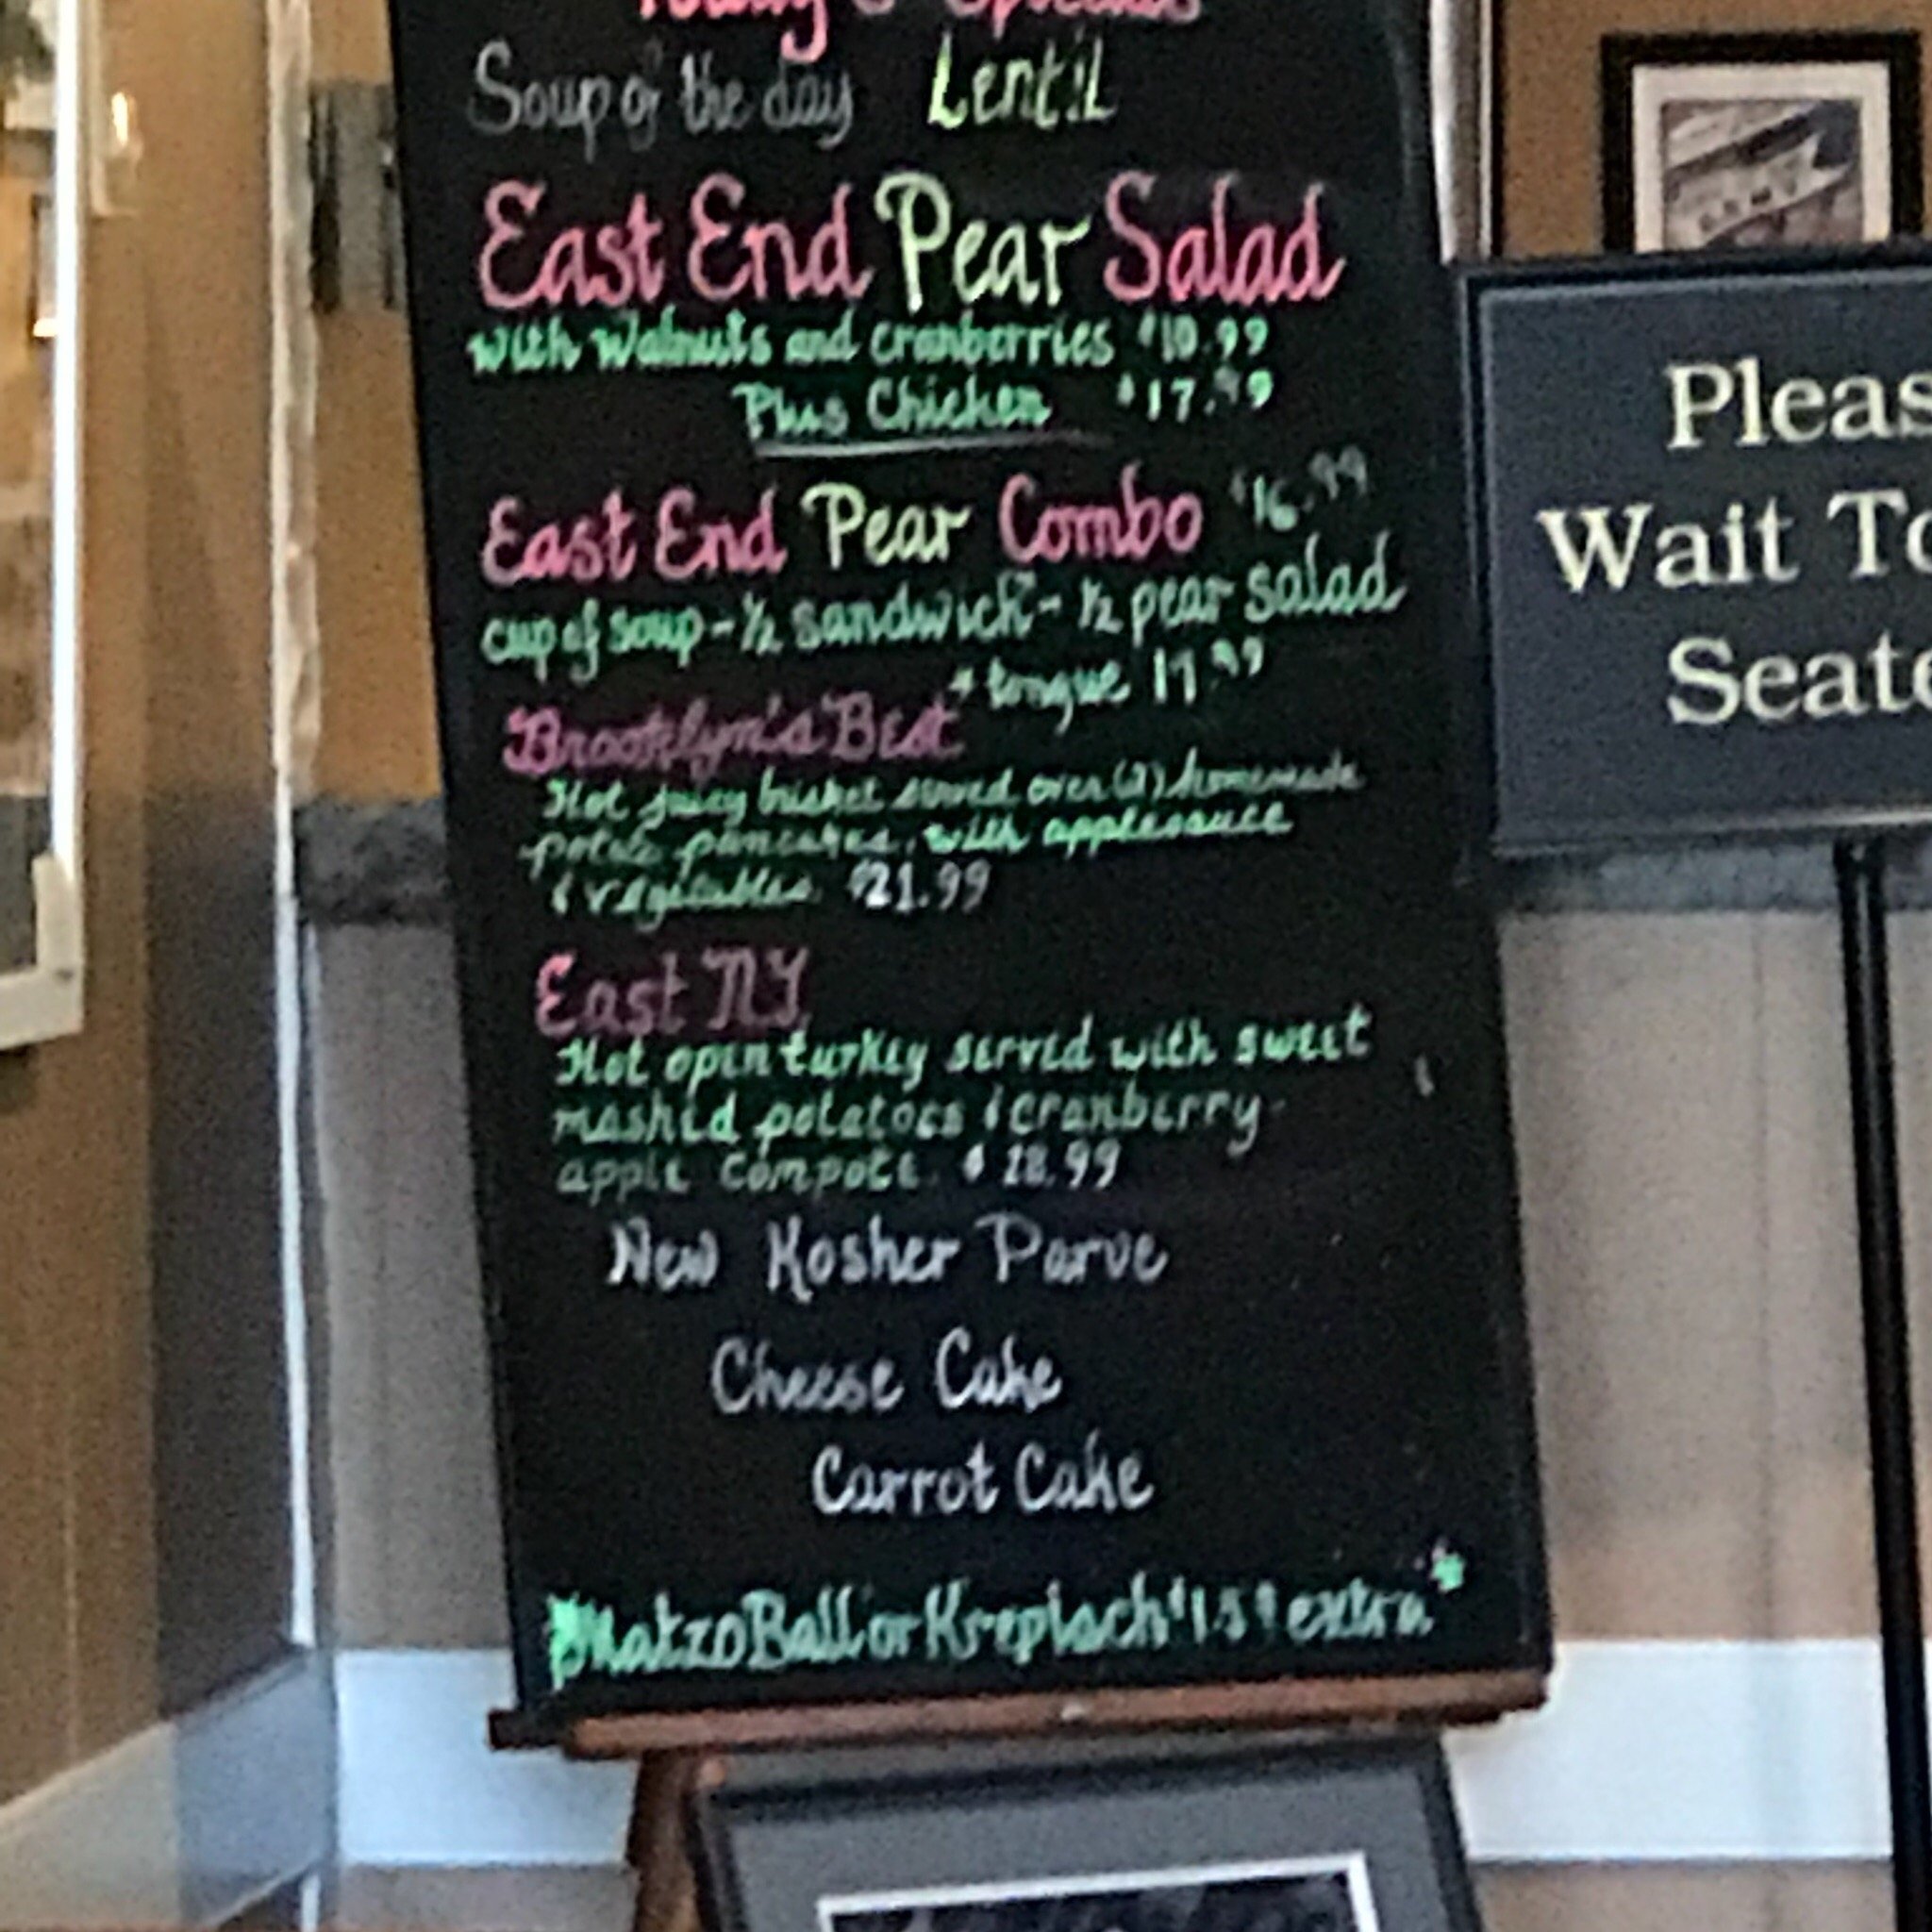 Today's Specials
Soup of the day Lentil
East End Pear Salad
with Walnuts and cranberries $10.99
Plus Chicken $17.99
East End Pear Combo $16.99
cup of soup - ½ sandwich - ½ pear salad
tongue
Brooklyn's Best
Hot juicy brisket served over (2) homemade
potato pancakes, with applesauce
& vegetables. $21.99
East NY
Hot open turkey served with sweet
mashed potatoes & cranberry-
apple compote. $
New Kosher Parve
Cheese Cake
Carrot Cake
Matzo Ball or Kreplach extra*
Pleas
Wait To
Seate